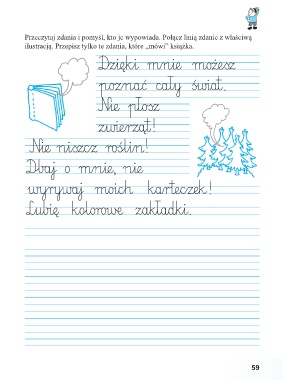 Przeczytaj zdania i pomyśl, kto je wypowiada. Połącz linią zdanie z właściwą
ilustracją. Przepisz tylko te zdania, które „mówi” książka.
Dzięki mnie możesz
poznać cały świat.
Nie płosz
zwierząt!
Nie niszcz roślin!
Dbaj o mnie, nie
wyrywaj moich karteczek!
Lubię kolorowe zakładki.
59